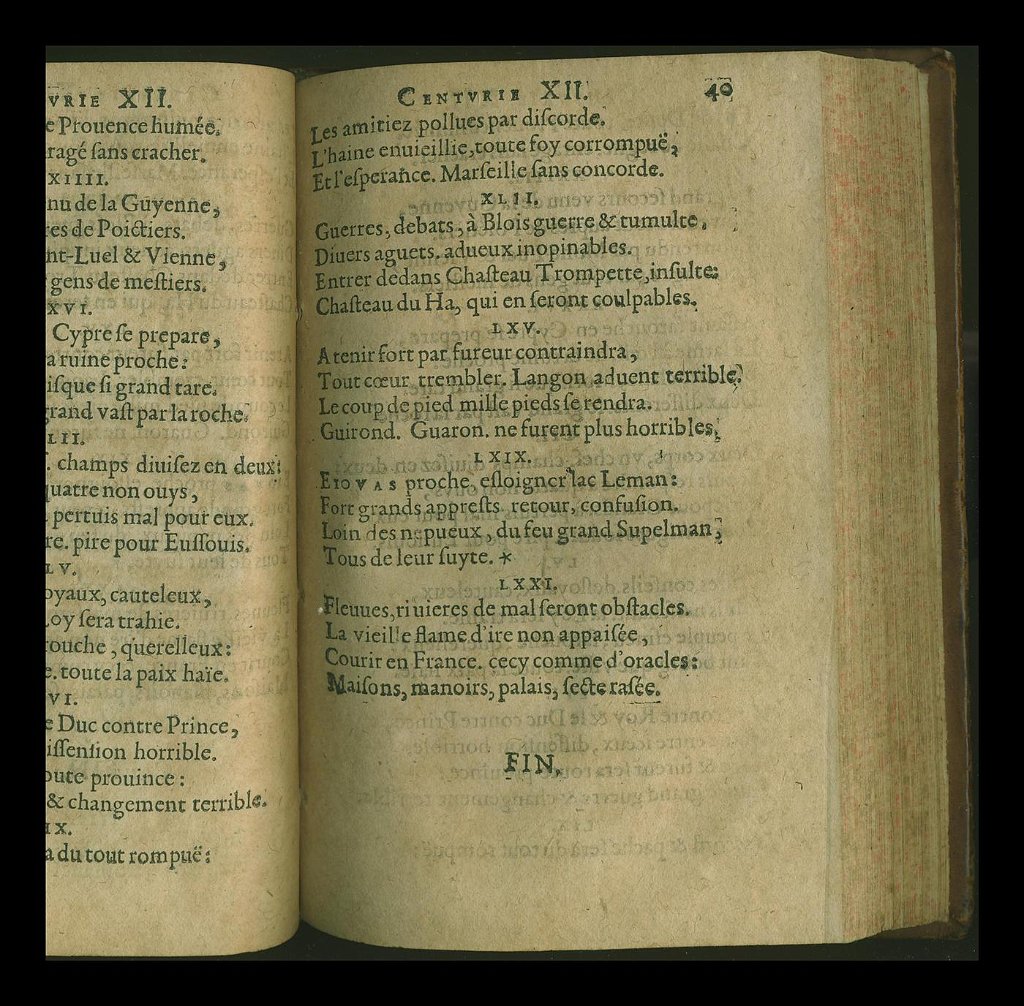 VRIE XII.
e Prouence humée.
ragé ſans cracher.
XIIII.
nu de la Guyenne,
es de Poictiers.
nt-Luel & Vienne,
gens de meſtiers.
XVI.
Cypre ſe prepare,
a ruine proche:
iſque ſi grand tare.
rand vaſt par la roche.
LII.
. champs diuiſez en deux:
uatre non ouys,
pertuis mal pour eux.
re. pire pour Euſſouis.
LV.
oyaux, cauteleux,
oy ſera trahie.
rouche, querelleux:
e. toute la paix haïe.
VI.
e Duc contre Prince,
iſſenſion horrible.
oute prouince:
& changement terrible.
IX.
a du tout rompuë:
CENTVRIE XII. 40
Les amitiez pollues par diſcorde.
L'haine enuieillie, toute foy corrompuë,
Et l'eſperance. Marſeille ſans concorde.
XLII.
Guerres, debats, à Blois guerre & tumulte,
Diuers aguets. adueux inopinables.
Entrer dedans Chaſteau Trompette, inſulte:
Chaſteau du Ha, qui en ſeront coulpables.
LXV.
A tenir fort par fureur contraindra,
Tout cœur trembler. Langon aduent terrible:
Le coup de pied mille pieds ſe rendra.
Guirond. Guaron. ne furent plus horribles.
LXIX.
EIOVAS proche, eſloigner lac Leman:
Fort grands appreſts retour, confuſion.
Loin des nepueux, du feu grand Supelman,
Tous de leur ſuyte. *
LXXI.
Fleuues, riuieres de mal ſeront obſtacles.
La vieille flame d'ire non appaiſée,
Courir en France. cecy comme d'oracles:
Maiſons, manoirs, palais, ſecte raſée.
FIN.